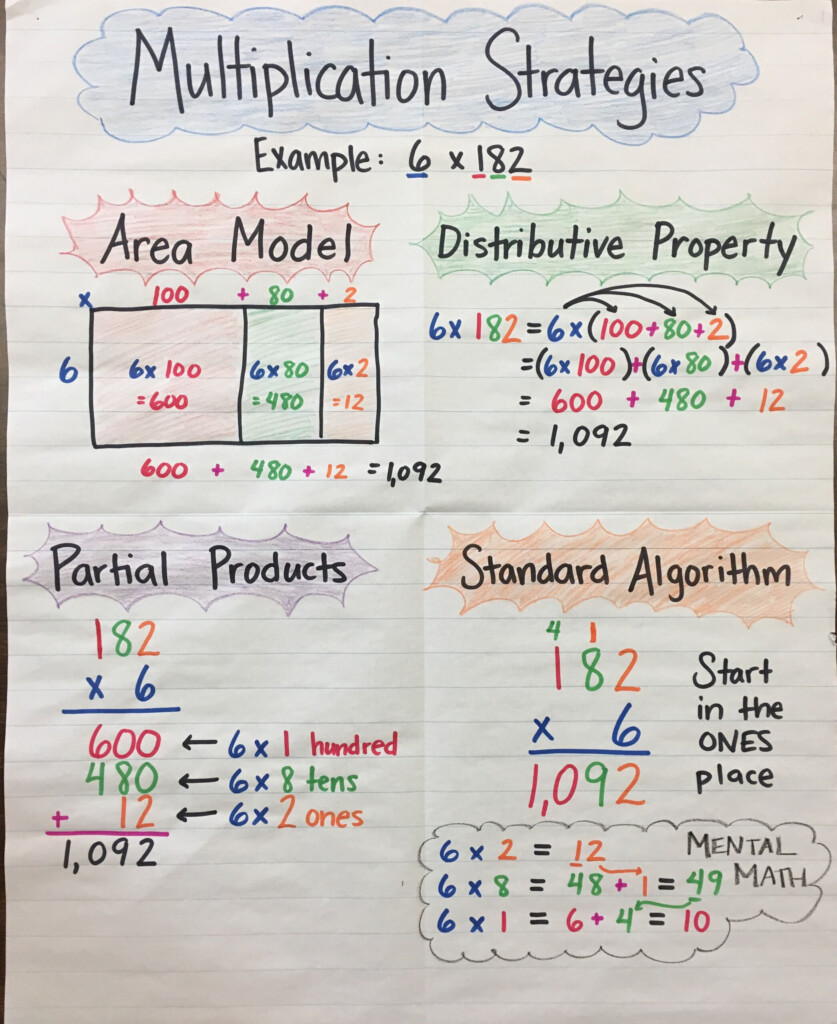 Multiplication Strategies
Example: 6 x 182
Area Model
x 100 + 80 + 2
6
6x100 6x80 6x2
=600 =480 =12
600 + 480 + 12 = 1,092
Distributive Property
6x 182 = 6x(100+80+2)
=(6x100)+(6x80)+(6x2)
= 600 + 480 + 12
= 1,092
Partial Products
182
x 6
600 ← 6x 1 hundred
480 ← 6x 8 tens
+ 12 ← 6x 2 ones
1,092
Standard Algorithm
4 1
182
x 6
1,092
Start
in the
ONES
place
MENTAL
MATH
6 x 2 = 12
6 x 8 = 48 + 1 = 49
6 x 1 = 6 + 4 = 10